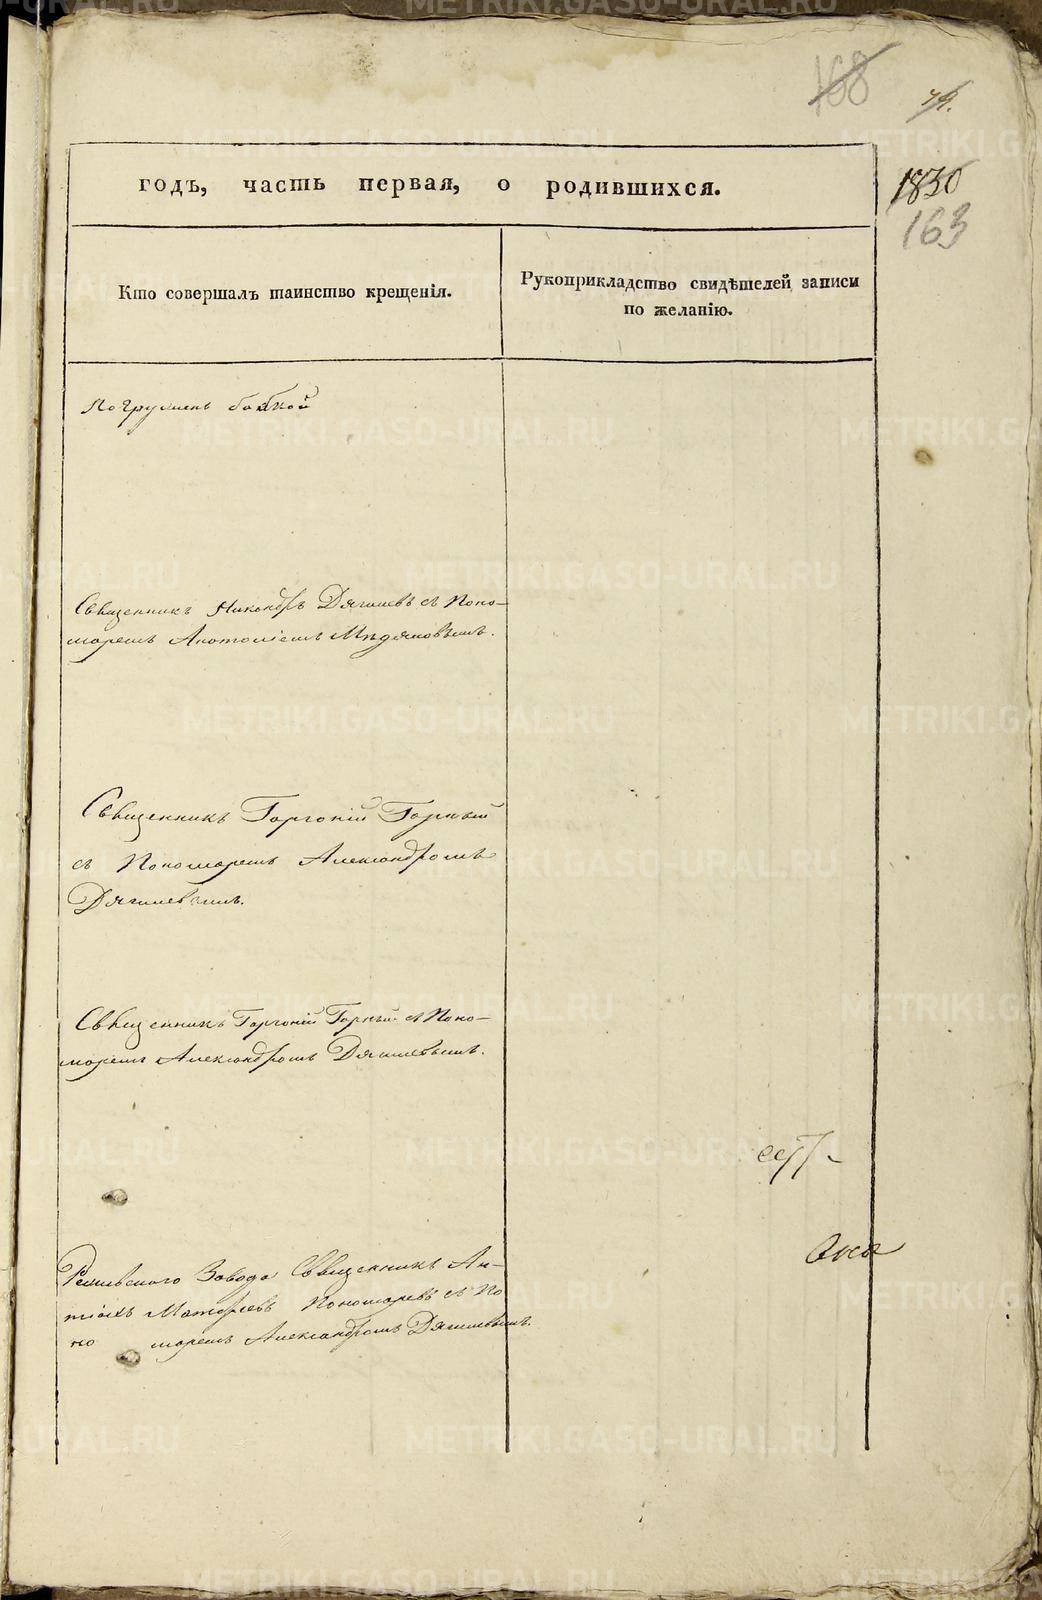 168
79.
годъ, часть первая, о родившихся.
1830
163
Кто совершалъ таинство крещенія.
Рукоприкладство свидѣтелей записи
по желанію.
Погружен бабкой
Священникъ Никандръ Дягилевъ съ Поно-
маремъ Анатоліемъ
Священникъ Горгоній Горный
съ Пономаремъ Александромъ
Дягилевымъ.
Священникъ Горгоній Горный съ Поно-
маремъ Александромъ Дягилевымъ.
Завода Священникъ Ан-
Пономаревъ съ По
но маремъ Александромъ Дягилевымъ.
METRIKI.GASO-URAL.RU